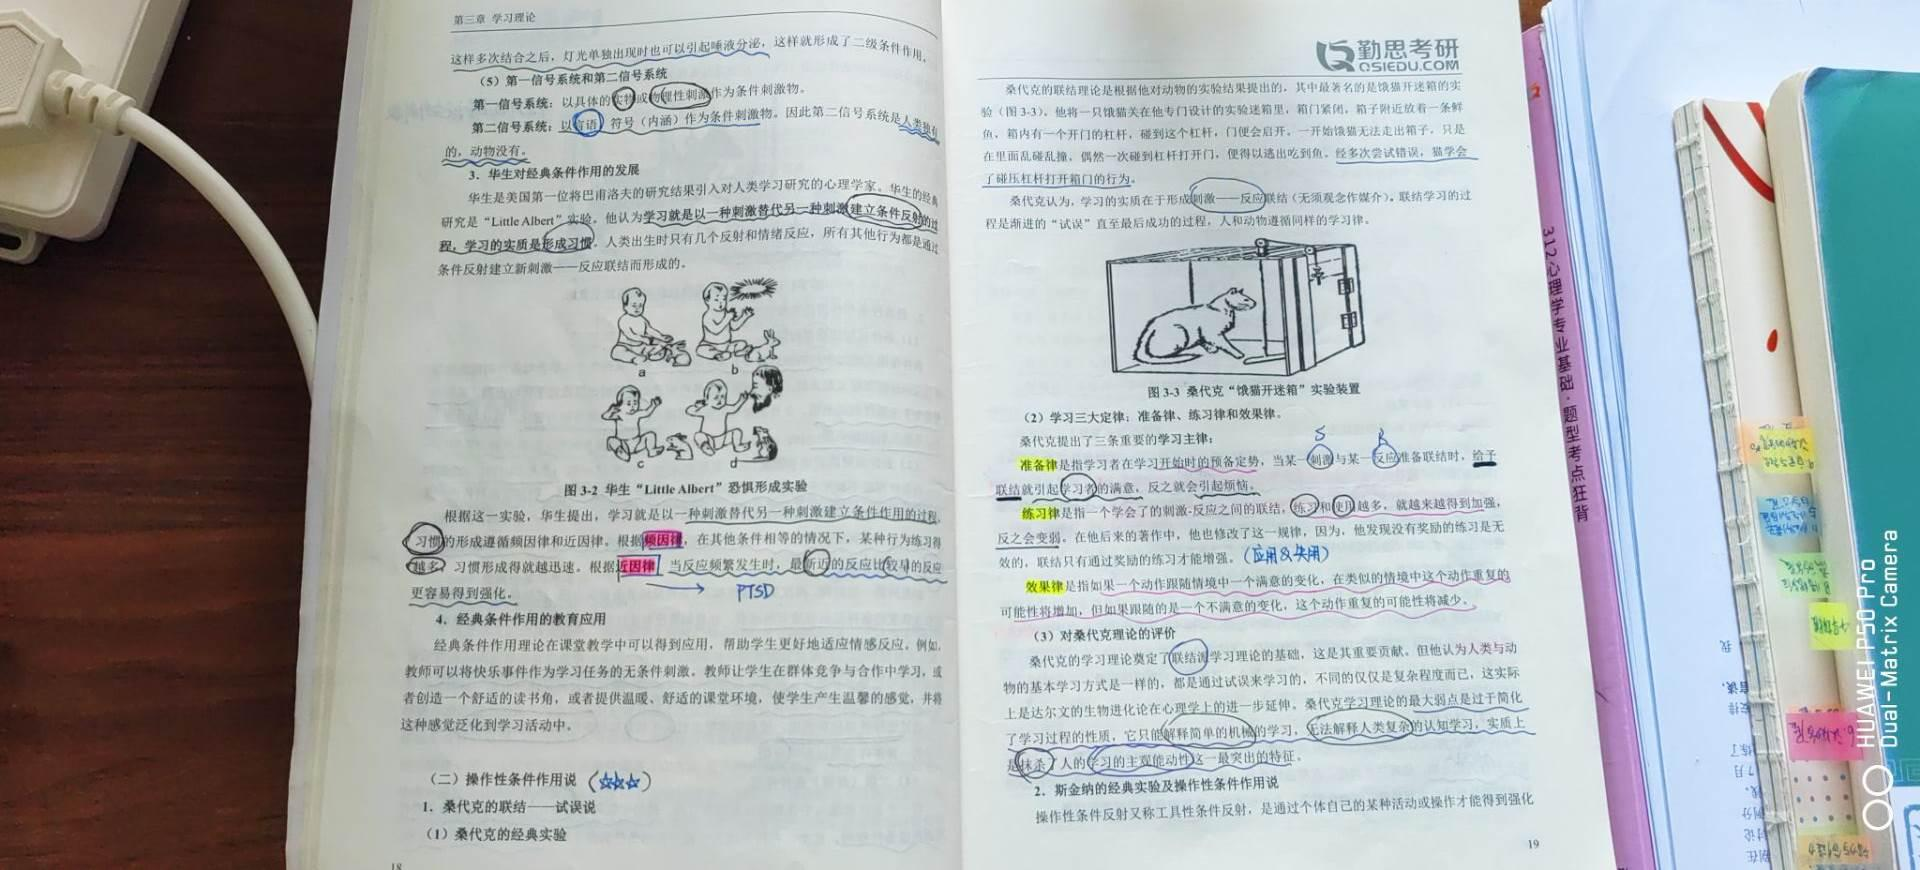 第三章 学习理论
这样多次结合之后，灯光单独出现时也可以引起唾液分泌，这样就形成了二级条件作用。
（5）第一信号系统和第二信号系统
第一信号系统：以具体的实物或物理性刺激作为条件刺激物。
第二信号系统：以言语 符号（内涵）作为条件刺激物。因此第二信号系统是人类独有
的，动物没有。
3．华生对经典条件作用的发展
华生是美国第一位将巴甫洛夫的研究结果引入对人类学习研究的心理学家。华生的经典
研究是“Little Albert”实验。他认为学习就是以一种刺激替代另一种刺激建立条件反射的过
程，学习的实质是形成习惯。人类出生时只有几个反射和情绪反应，所有其他行为都是通过
条件反射建立新刺激——反应联结而形成的。
a
b
c
d
图 3-2 华生“Little Albert”恐惧形成实验
根据这一实验，华生提出，学习就是以一种刺激替代另一种刺激建立条件作用的过程，
习惯的形成遵循频因律和近因律。根据频因律，在其他条件相等的情况下，某种行为练习得
越多，习惯形成得就越迅速。根据近因律，当反应频繁发生时，最新近的反应比较早的反应
更容易得到强化。
PTSD
4．经典条件作用的教育应用
经典条件作用理论在课堂教学中可以得到应用，帮助学生更好地适应情感反应。例如，
教师可以将快乐事件作为学习任务的无条件刺激。教师让学生在群体竞争与合作中学习，或
者创造一个舒适的读书角，或者提供温暖、舒适的课堂环境，使学生产生温馨的感觉，并将
这种感觉泛化到学习活动中。
（二）操作性条件作用说（☆☆☆）
1．桑代克的联结——试误说
（1）桑代克的经典实验
18
勤思考研
QSIEDU.COM
桑代克的联结理论是根据他对动物的实验结果提出的，其中最著名的是饿猫开迷箱的实
验（图 3-3）。他将一只饿猫关在他专门设计的实验迷箱里，箱门紧闭，箱子附近放着一条鲜
鱼，箱内有一个开门的杠杆，碰到这个杠杆，门便会启开。一开始饿猫无法走出箱子，只是
在里面乱碰乱撞，偶然一次碰到杠杆打开门，便得以逃出吃到鱼。经多次尝试错误，猫学会
了碰压杠杆打开箱门的行为。
桑代克认为，学习的实质在于形成刺激——反应联结（无须观念作媒介）。联结学习的过
程是渐进的“试误”直至最后成功的过程，人和动物遵循同样的学习律。
图 3-3 桑代克“饿猫开迷箱”实验装置
（2）学习三大定律：准备律、练习律和效果律。
桑代克提出了三条重要的学习主律：
S R
准备律是指学习者在学习开始时的预备定势，当某一刺激与某一反应准备联结时，给予
联结就引起学习者的满意，反之就会引起烦恼。
练习律是指一个学会了的刺激-反应之间的联结，练习和使用越多，就越来越得到加强，
反之会变弱。在他后来的著作中，他也修改了这一规律，因为，他发现没有奖励的练习是无
效的，联结只有通过奖励的练习才能增强。（应用&失用）
效果律是指如果一个动作跟随情境中一个满意的变化，在类似的情境中这个动作重复的
可能性将增加，但如果跟随的是一个不满意的变化，这个动作重复的可能性将减少。
（3）对桑代克理论的评价
桑代克的学习理论奠定了联结派学习理论的基础，这是其重要贡献。但他认为人类与动
物的基本学习方式是一样的，都是通过试误来学习的，不同的仅仅是复杂程度而已，这实际
上是达尔文的生物进化论在心理学上的进一步延伸。桑代克学习理论的最大弱点是过于简化
了学习过程的性质，它只能解释简单的机械的学习，无法解释人类复杂的认知学习，实质上
是抹杀了人的学习的主观能动性这一最突出的特征。
2．斯金纳的经典实验及操作性条件作用说
操作性条件反射又称工具性条件反射，是通过个体自己的某种活动或操作才能得到强化
19
312心理学专业基础·题型考点狂背
HUAWEI P50 Pro
Dual-Matrix Camera